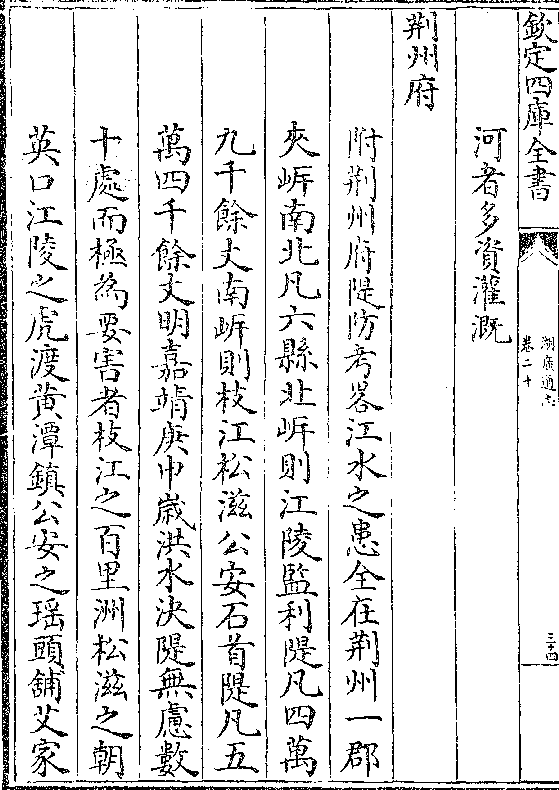 欽定四庫全書
湖廣通志
卷二十
三十四
河者多資灌溉
荆州府
附荆州府隄防考畧江水之患全在荆州一郡
夾㟁南北凡六縣北㟁則江陵監利隄凡四萬
九千餘丈南㟁則枝江松滋公安石首隄凡五
萬四千餘丈明嘉靖庚申歲洪水決隄無慮數
十處而極為要害者枝江之百里洲松滋之朝
英口江陵之虎渡黄潭鎮公安之瑶頭舖艾家